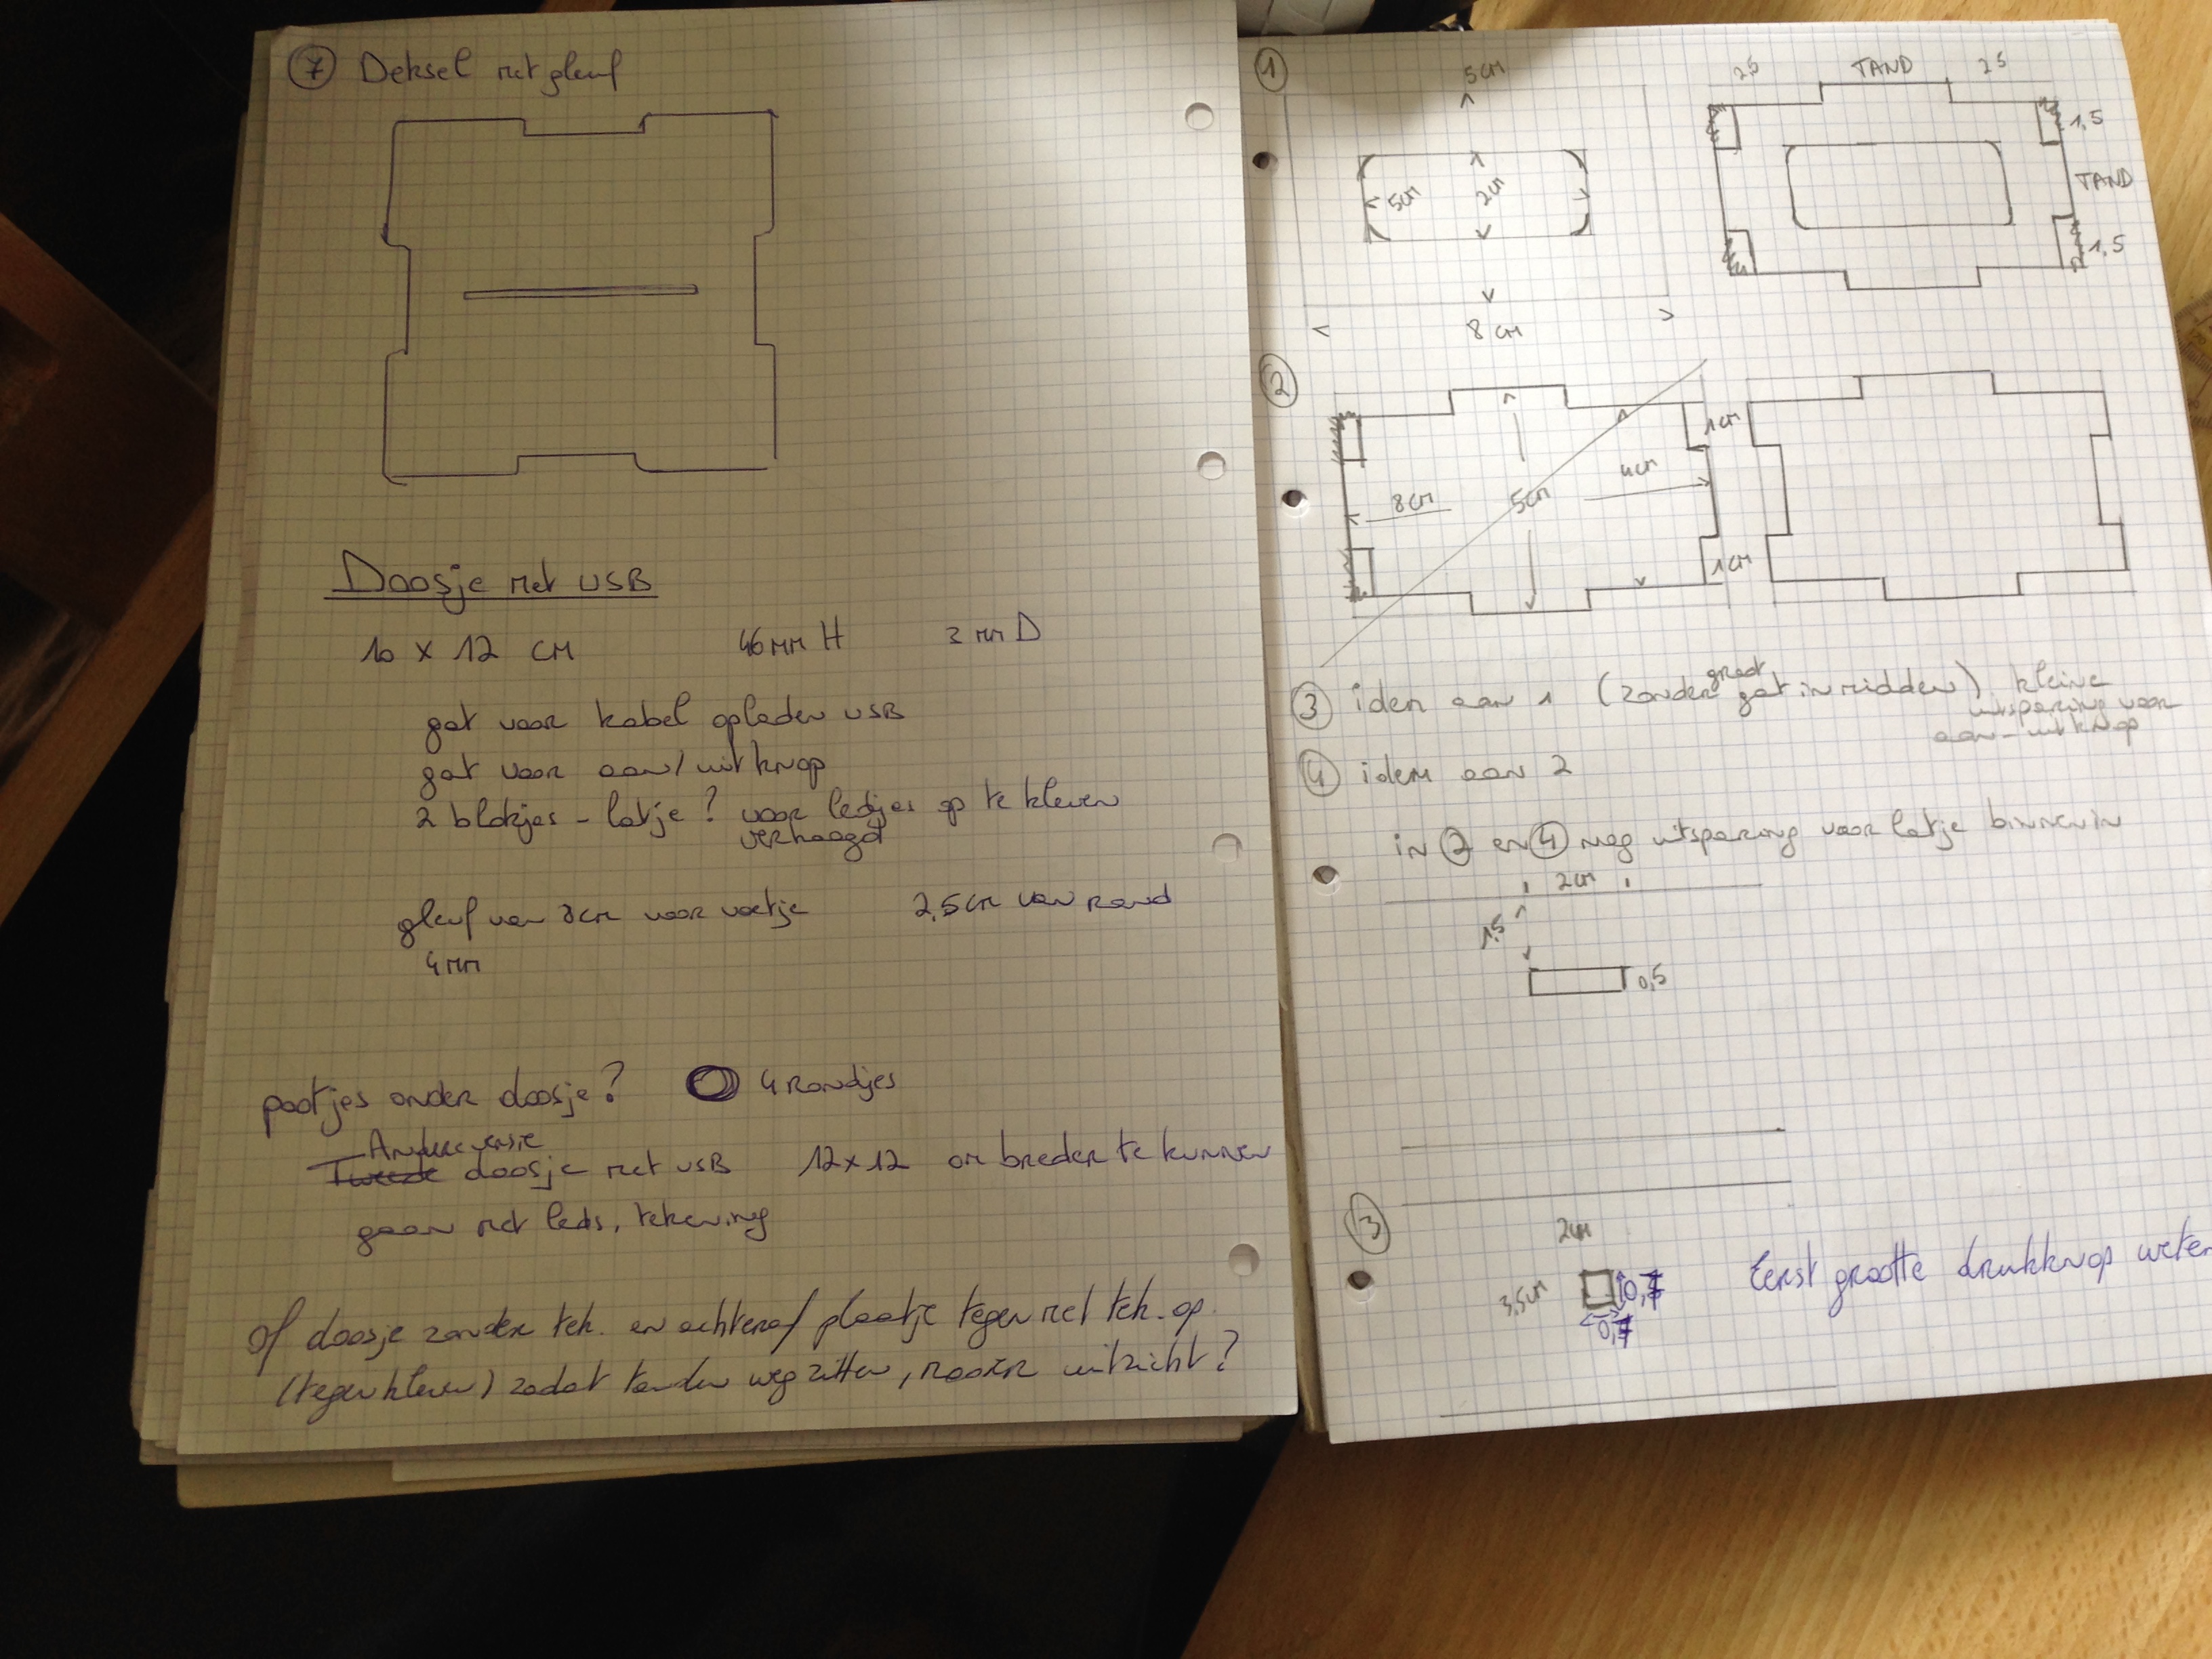 ⑦ Deksel met gleuf
Doosje met USB
10 x 12 cm 46 mm H 3 mm D
gat voor kabel opladen USB
gat voor aan/uitknop
2 blokjes - latje? voor ledjes op te kleven
verhoogd
gleuf van 8cm voor voetje 2,5cm van rand
4mm
pootjes onder doosje? 4 rondjes
Tweede doosje met USB 12x12 om breder te kunnen
gaan met leds, tekening
of doosje zonder tek. en achteraf plaatje tegen met tek. op.
(tegenkleven) zodat tanden wegzitten, mooier uitzicht?
①
5cm
5cm
2cm
8cm
25
TAND
25
1,5
TAND
1,5
②
8cm
5cm
4cm
1cm
1cm
③ idem aan 1 (zonder groot gat in midden), kleine
uitsparing voor
aan-uitknop
④ idem aan 2
in ② en ④ nog uitsparing voor latje binnenin
2cm
1,5
0,5
③
2cm
3,5cm
0,7
0,7
Eerst grootte drukknop weten